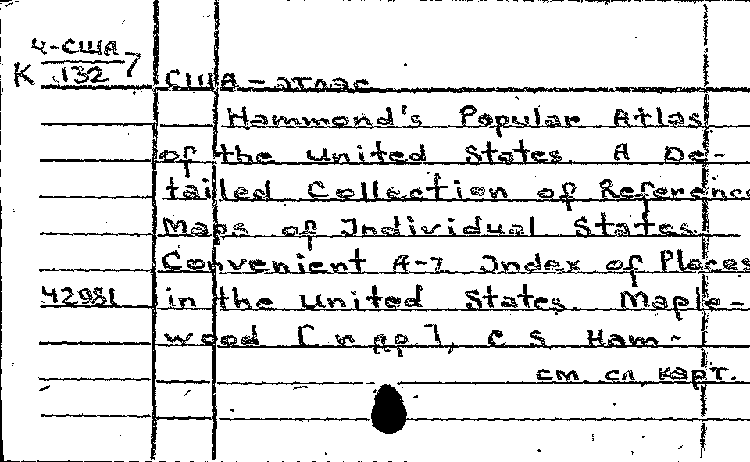 4-США
К 132 7
США - атлас
Hammond's Popular Atlas
of the United States. A De-
tailed Collection of Reference
Maps of Individual States.
Convenient A-Z Index of Places
42981 in the United States. Maple-
wood [n pp], C S Ham-
см. сл. карт.